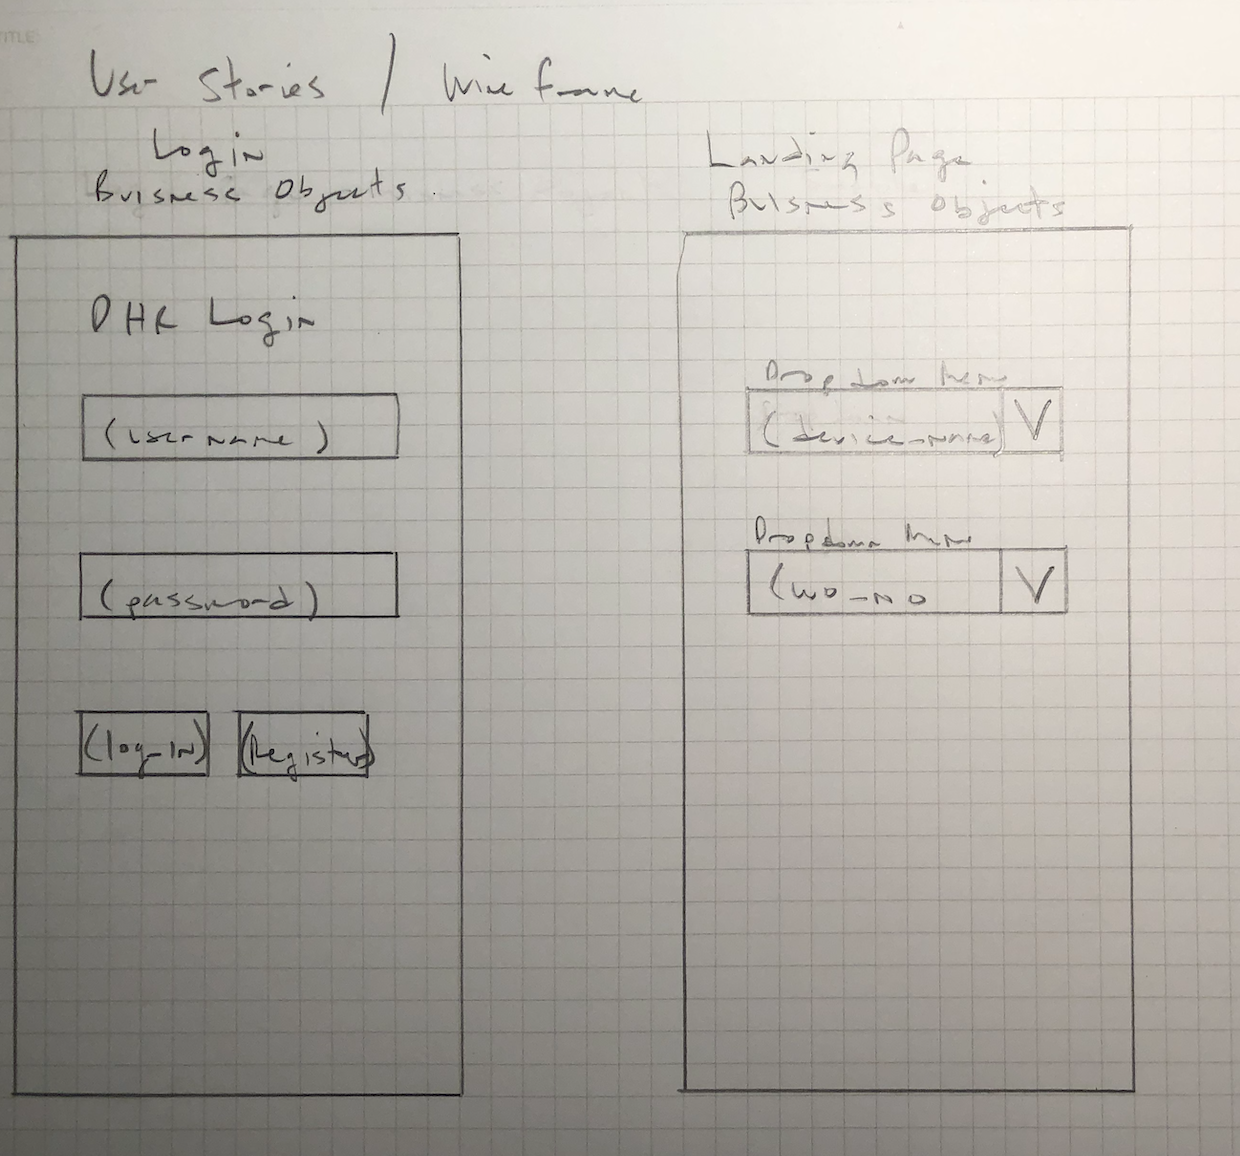 TITLE
User Stories / Wire Frame
Login
Buisness Objects.
DHR Login
(username)
(password)
(log-IN) (Register)
Landing Page
Buisness Objects
Dropdown Menu
(device-name) V
Dropdown Menu
(wo-no V